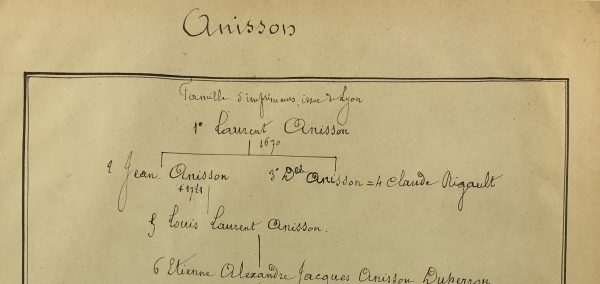 Anisson
Famille d'imprimeurs, issue de Lyon
1° Laurent Anisson
1670
2 Jean Anisson 3° Delle Anisson = 4 Claude Rigault
+ 1721
5 Louis Laurent Anisson.
6 Etienne Alexandre Jacques Anisson Duperron